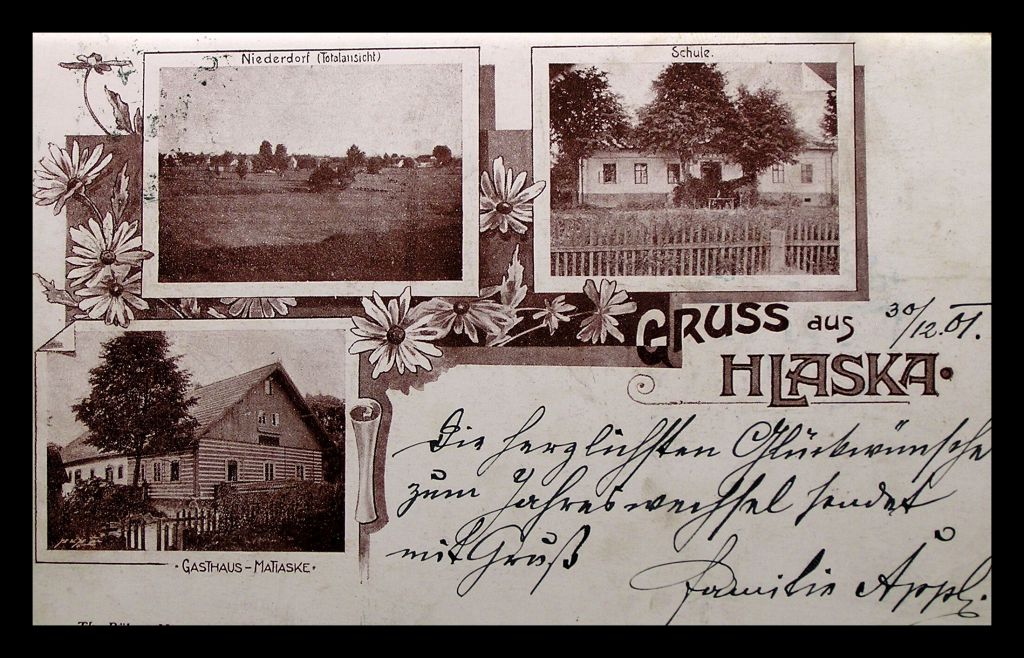 Niederdorf (Totalansicht)
Schule.
GRUSS aus
30/12.01.
HLASKA.
Die herzlichsten Glückwünsche
zum Jahreswechsel sendet
mit Gruß
Familie Appl.
· GASTHAUS – MATIASKE ·